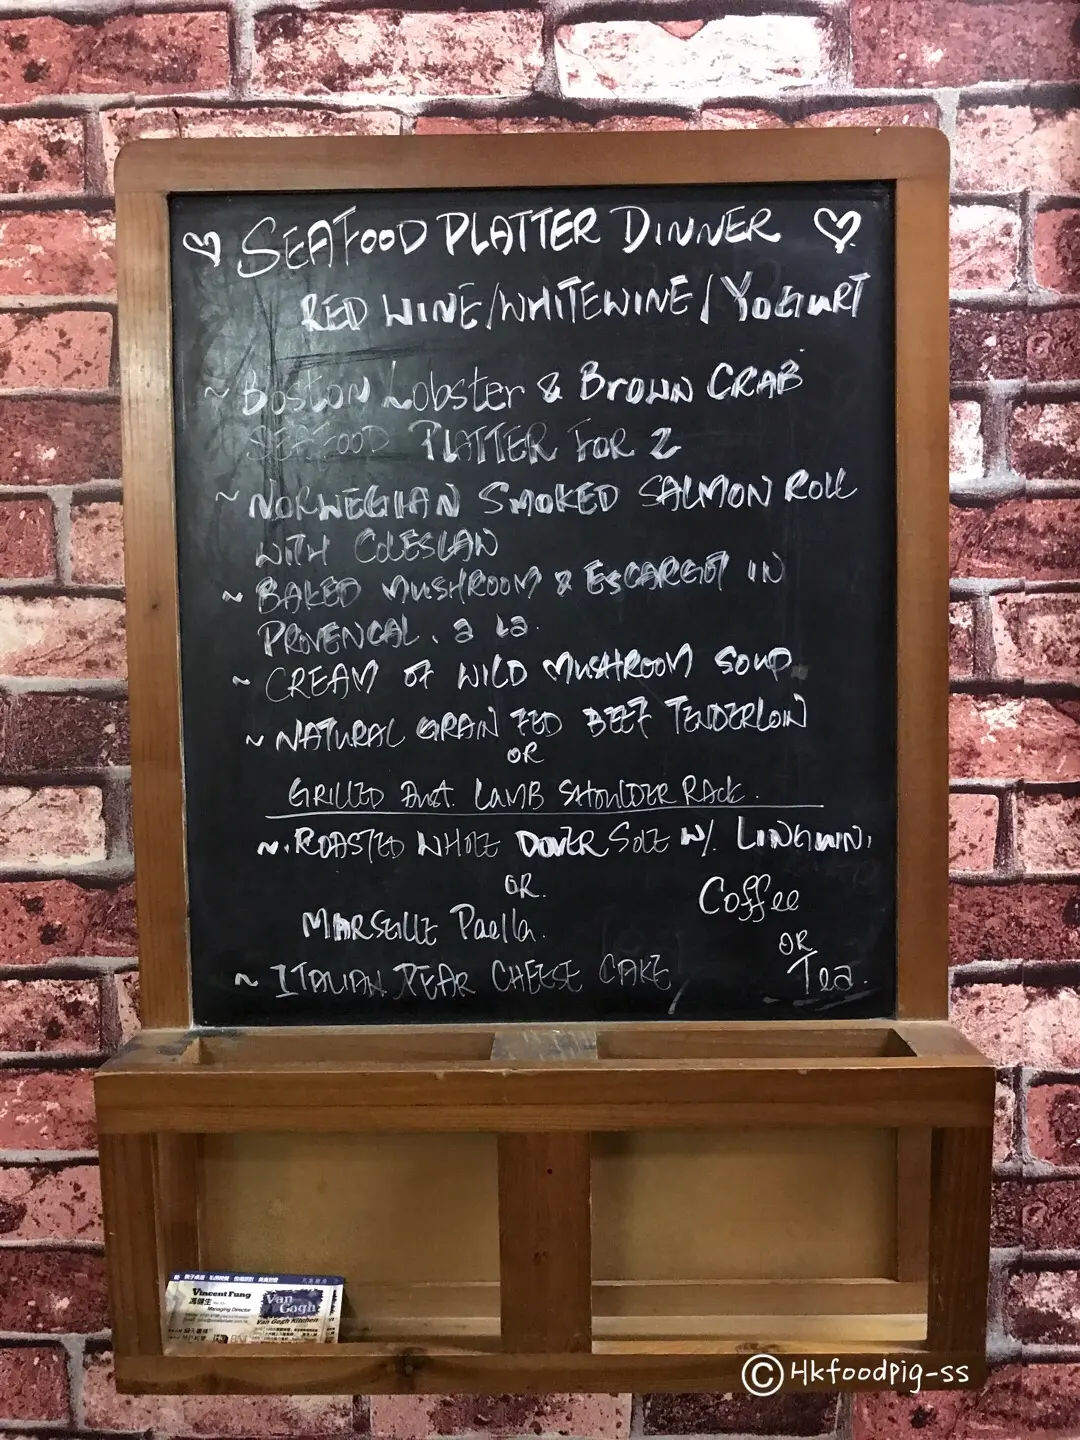 ♡ SEAFOOD PLATTER DINNER ♡
RED WINE/WHITEWINE/YOGURT
~ BOSTON LOBSTER & BROWN CRAB
SEAFOOD PLATTER FOR 2
~ NORWEGIAN SMOKED SALMON ROLL
WITH COLESLAN
~ BAKED MUSHROOM & ESCARGOT IN
PROVENCAL. a la.
~ CREAM OF WILD MUSHROOM SOUP
~ NATURAL GRAIN FED BEEF TENDERLOIN
OR
GRILLED LAMB SHOULDER RACK.
~. ROASTED WHOLE DOVER SOLE W/. LINGUINI
OR.
MARSEILLE Paella.
Coffee
OR
Tea.
~ ITALIAN PEAR CHEESE CAKE
Vincent Fung
Managing Director
Van Gogh
Van Gogh Kitchen
© Hkfoodpig-ss